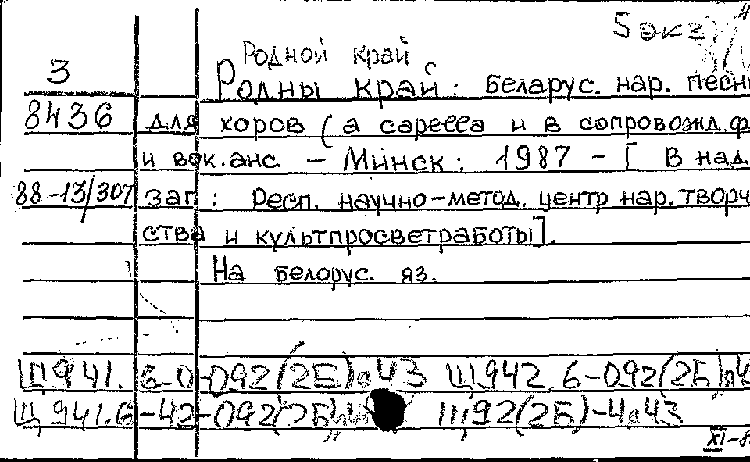 5 экз.
Родной край
3
Родны край: Беларус. нар. песн
8436 для хоров (a capella и в сопровожд. ф
и вок. анс. – Минск: 1987 – [ В над
88-13/307 заг.: Респ. научно-метод. центр нар. творч
ства и культпросветработы].
На белорус. яз.
Щ941.6-0-092(2Б)я43 Щ942.6-092(2Б)я4
Щ941.6-42-092(2Б) Щ92(2Б)-4я43
XI-8